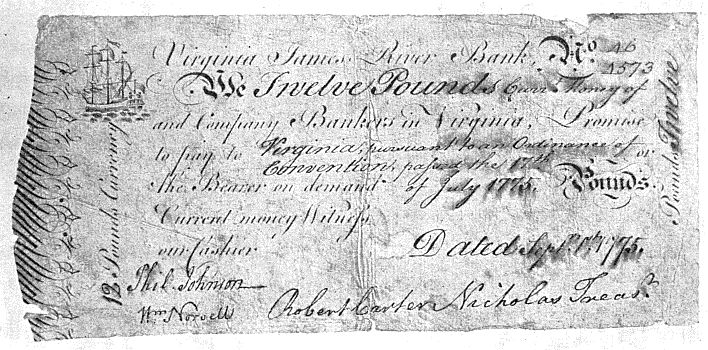 Virginia James River Bank, No. 46
4573
We Twelve Pounds Curr. Money of
and Company Bankers in Virginia, Promise
to pay to Virginia, pursuant to an Ordinance of or
Convention, passed the 17th
the Bearer on demand of July 1775. Pounds
Current money Witness
our Cashier
Dated Sept. 1st 1775.
Phil. Johnson
Wm Norvell
Robert Carter Nicholas Treasr.
12 Pounds Currency
Pounds Twelve